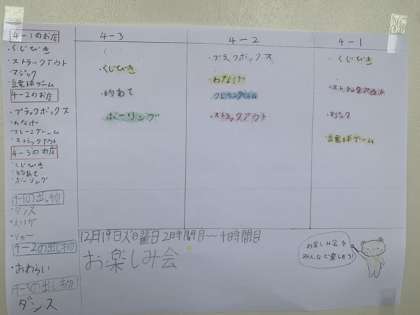 4-1のお店
・くじびき
・ストラックアウト
・マジック
・言葉ゲーム
4-2のお店
・ブラックボックス
・わなげ
・クレーンゲーム
・ストラックアウト
4-3のお店
・くじびき
・的あて
・ボーリング
4-1の出し物
・ダンス
4-2の出し物
・おわらい
4-3の出し物
ダンス
4-3
・くじびき
・的あて
・ボーリング
4-2
・ブラックボックス
・わなげ
・クレーンゲーム
・ストラックアウト
4-1
・くじびき
・マジック
・言葉ゲーム
12月19日火曜日2時間目〜4時間目
お楽しみ会
お楽しみ会を
みんなで楽しもう!